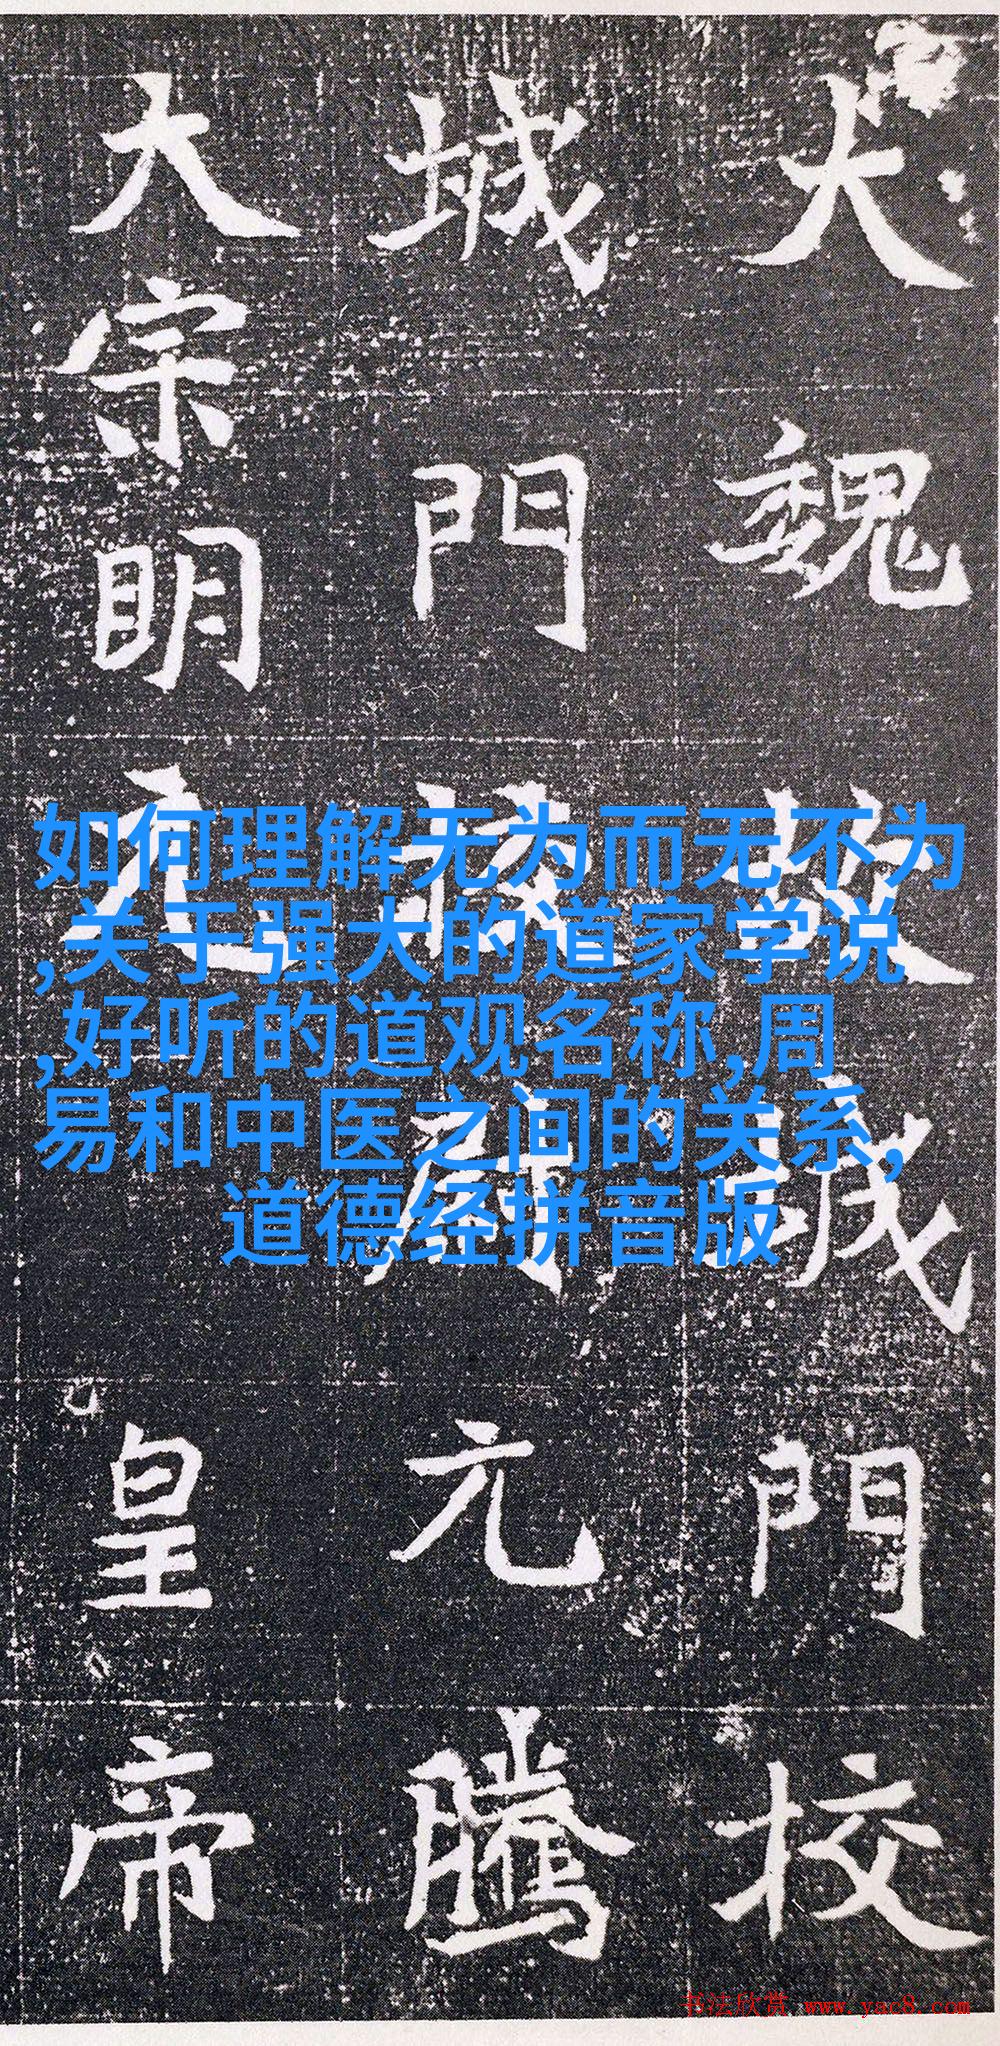 大魏故城門校
城門校尉元騰
大宗明元皇帝
如何理解无为而无不为
,关于强大的道家学说
,好听的道观名称,周
易和中医之间的关系,
道德经拼音版
书法欣赏 www.yac8.com